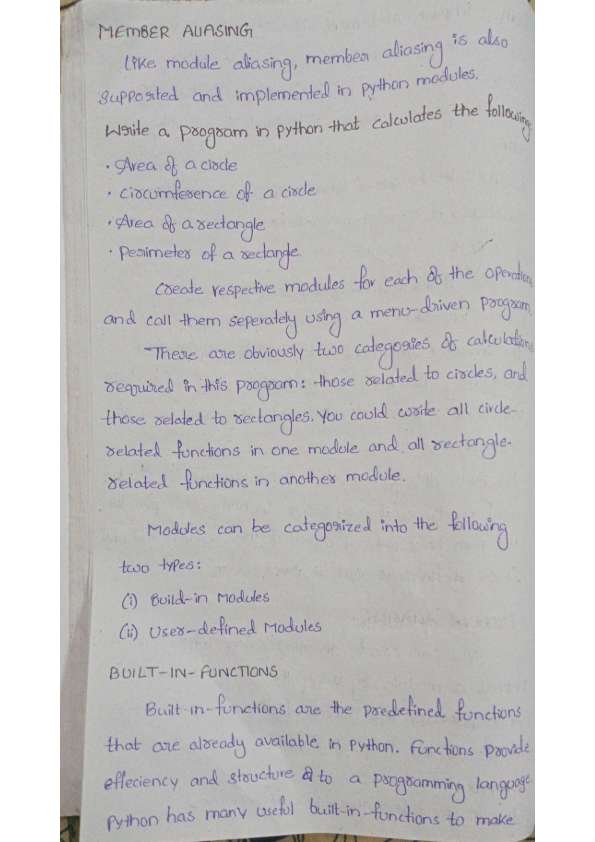 MEMBER ALIASING
Like module aliasing, member aliasing is also
supported and implemented in python modules.
Write a program in python that calculates the following
• Area of a circle
• circumference of a circle
• Area of a rectangle
• Perimeter of a rectangle.
Create respective modules for each of the operations
and call them seperately using a menu-driven program
There are obviously two categories of calculations
required in this program: those related to circles, and
those related to rectangles. You could write all circle-
related functions in one module and all rectangle-
related functions in another module.
Modules can be categorized into the following
two types:
(i) Build-in Modules
(ii) User-defined Modules
BUILT-IN-FUNCTIONS
Built-in-functions are the predefined functions
that are already available in python. Functions provide
effeciency and structure to a programming language
Python has many useful built-in-functions to make